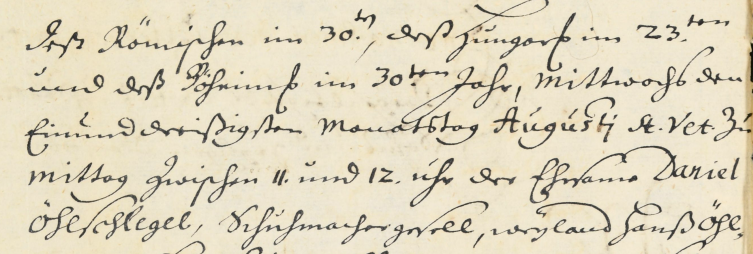 deß Römischen im 30.ten, deß Hungarß im 23.ten
und deß Böheimß im 30ten Jahr, Mittwochs den
Einunddreißigsten Monatstag Augusti St. Vet. Zu
mittag Zwischen 11. und 12. uhr der Ehrsame Daniel
Öhlschlegel, Schuhmachergesell, weyland Hanß Öhl-